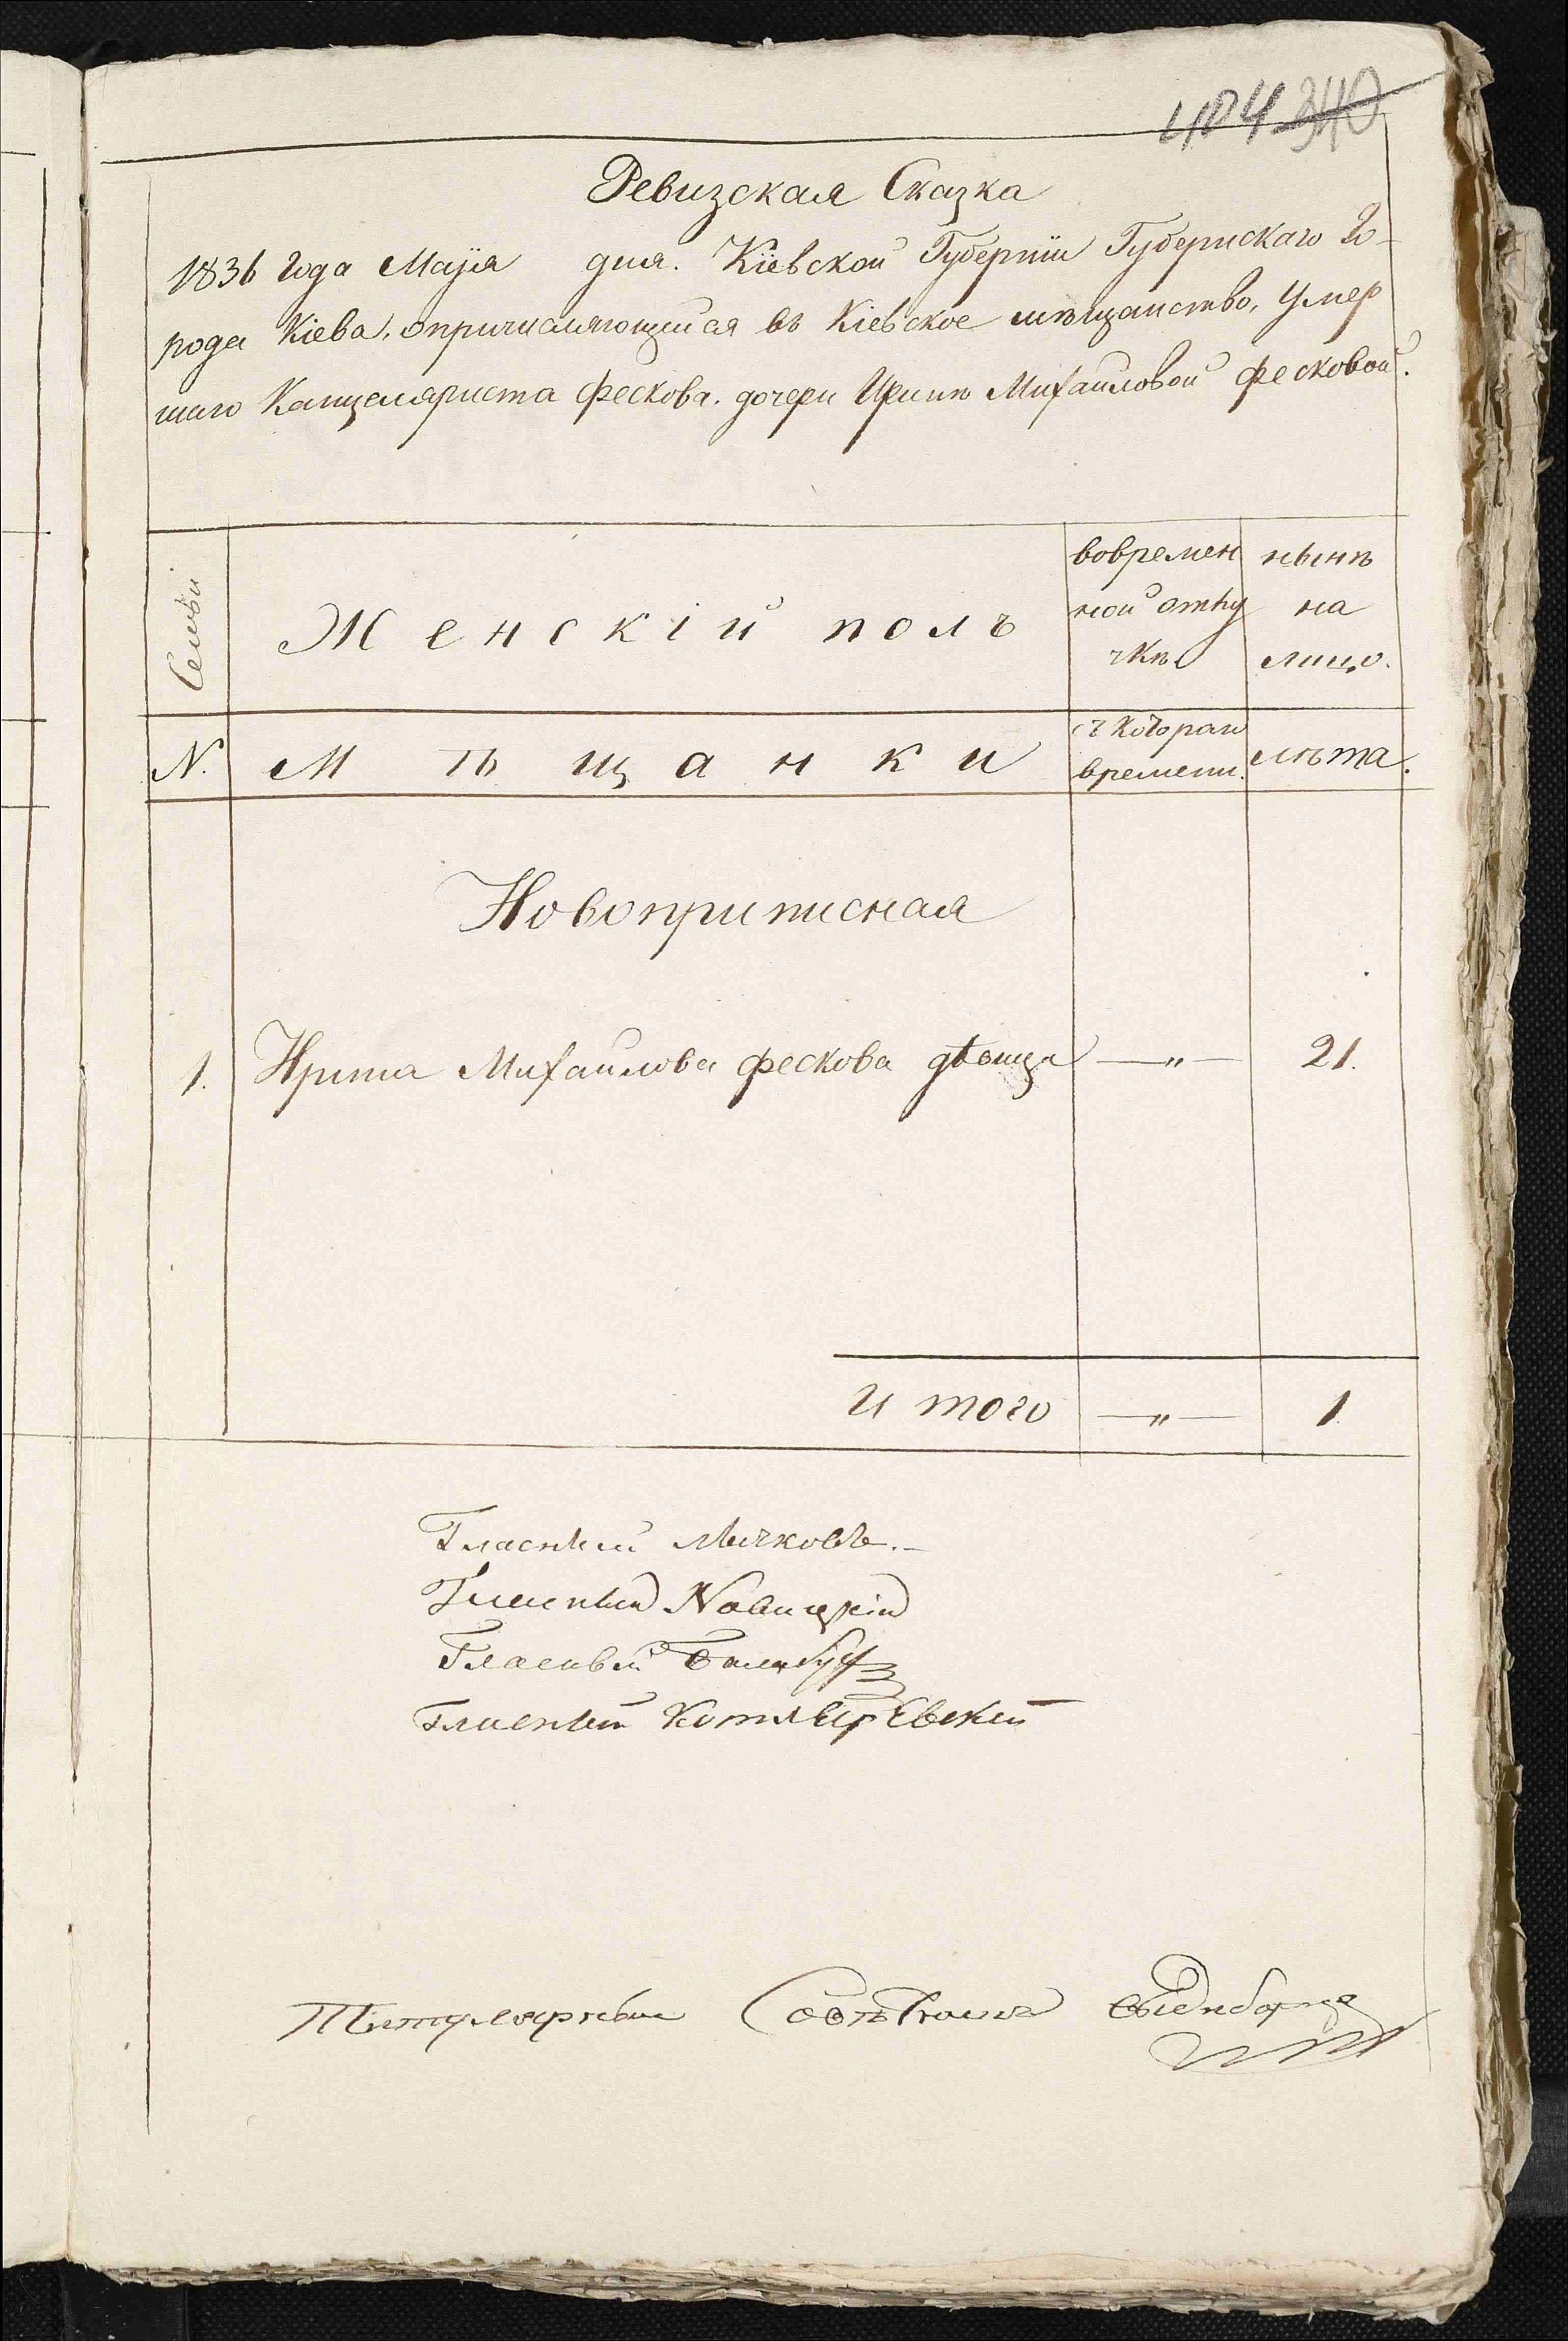 404 340
Ревизская Сказка
1836 года Маія дня. Кіевской Губерніи Губернскаго Го-
рода Кіева, опричисляющейся въ Кіевское мѣщанство, умер
шаго Канцеляриста Фескова. дочери Иринѣ Михайловой Фесковой.
Семьи
Женскій полъ
вовремен
ной отлу
чкѣ
нынѣ
на
лицо.
N.
Мѣщанки
съ котораго
времени.
лѣта.
Новоприписная
1. Ирина Михайлова Фескова дѣвица —„— 21.
И того —„— 1
Гласный Мычковъ.
Гласный Новицкій
Гласный
Гласный Котляревский
Титулярный Совѣтникъ